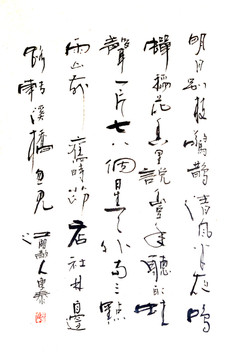 明月别枝驚鵲清風半夜鳴
蟬稻花香里說豐年聽取蛙
聲一片七八個星天外兩三點
雨山前舊時茅店社林邊
路轉溪橋忽見